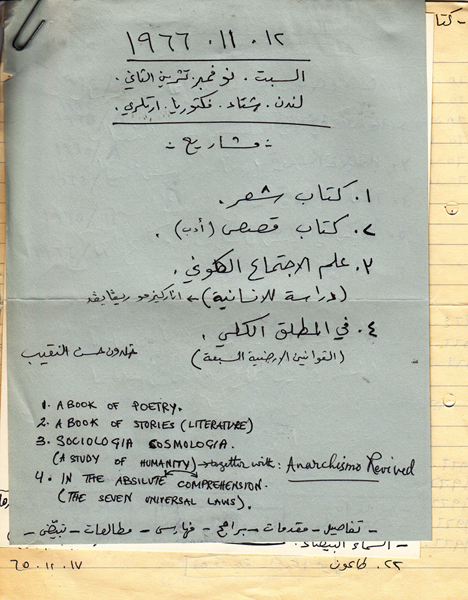 - كتا
١٩٦٦ . ١١ . ١٢
السبت . نوفمبر . تشرين الثاني .
لندن . شتاء . فكتوريا . ارتلري .
- مشاريع -
١. كتاب شعر .
٢. كتاب قصص (أدب) .
٣. علم الاجتماع الكوني .
(دراسة للانسانية) ← اناركيزمو ريڤايڤد
٤. في المطلق الكلي .
(القوانين الارضية السبعة)
خلدون حسن النقيب
1. A BOOK OF POETRY.
2. A BOOK OF STORIES (LITERATURE)
3. SOCIOLOGIA COSMOLOGIA.
(A STUDY OF HUMANITY) → together with: Anarchismo Revived
4. IN THE ABSLUTE COMPREHENSION.
(THE SEVEN UNIVERSAL LAWS).
- تفاصيل - مقدمات - برامج - فهارس - مطالعات -
- السماء البيضاء
٦٥ . ١١ . ١٧
٢٢ .